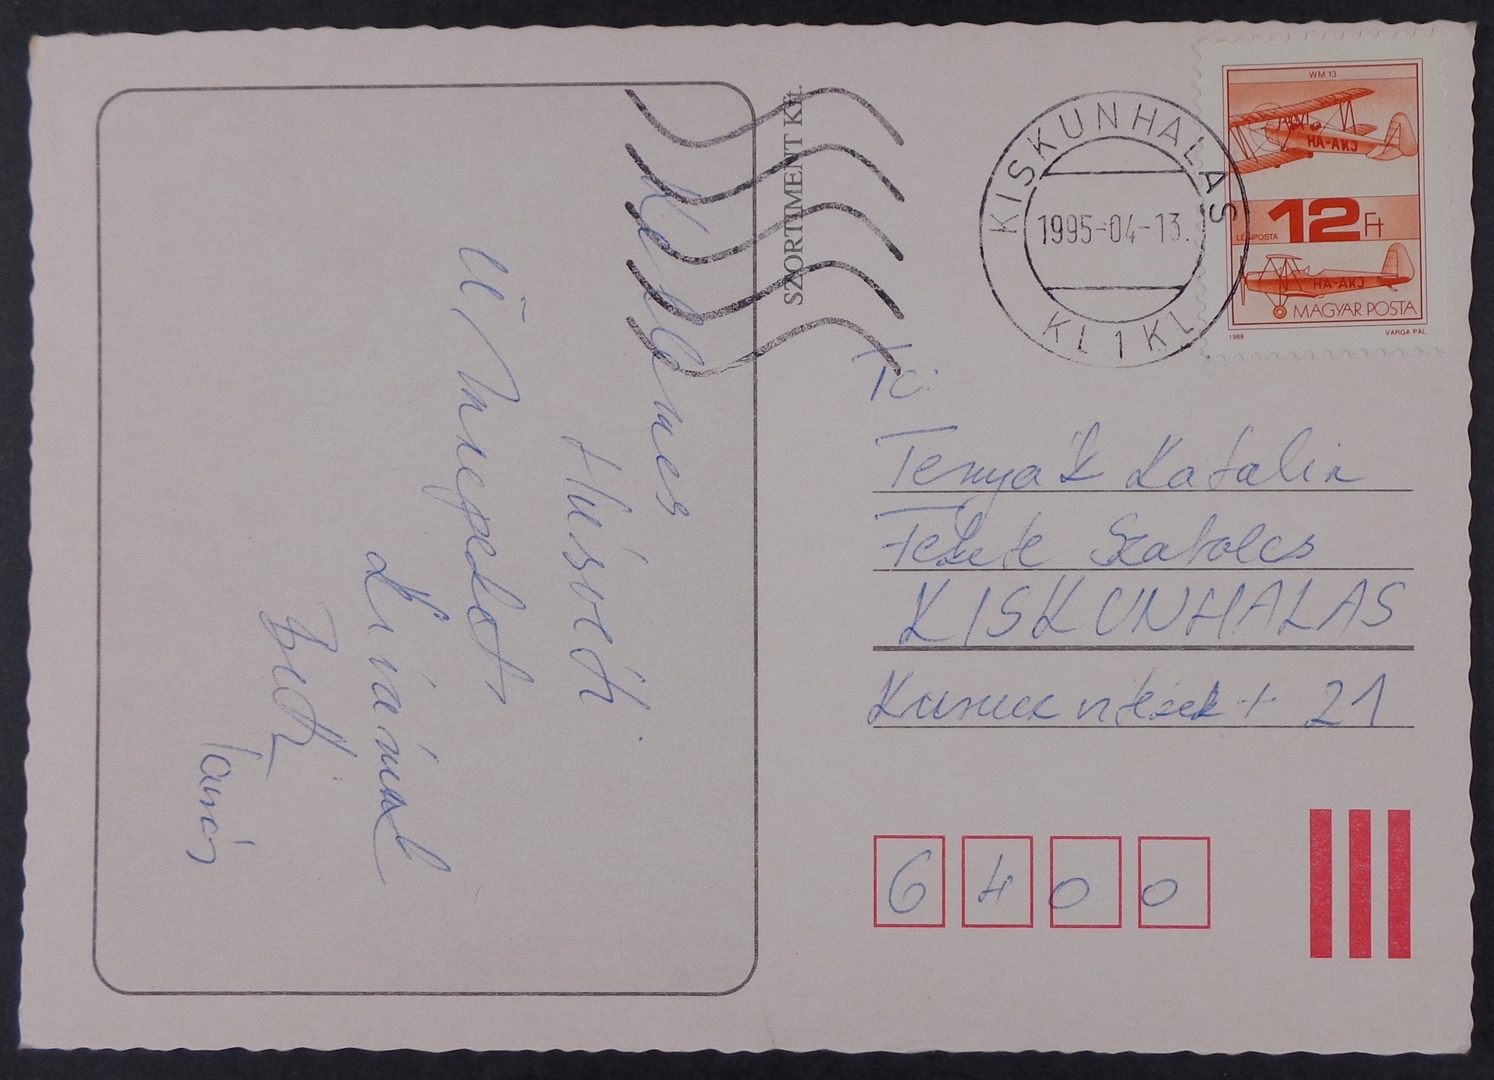 Kellemes
Húsvéti
Ünnepet
Kívánnak
Zsolt
Tamás
SZORTIMENT Kft.
KISKUNHALAS
1995-04-13.
KL 1 KL
WM 13
HA-AKJ
12 Ft
LÉGIPOSTA
HA-AKJ
MAGYAR POSTA
1988 VARGA PÁL
To:
Tenyák Katalin
Fekete Szabolcs
KISKUNHALAS
Kuruc vitézek t 21
6400